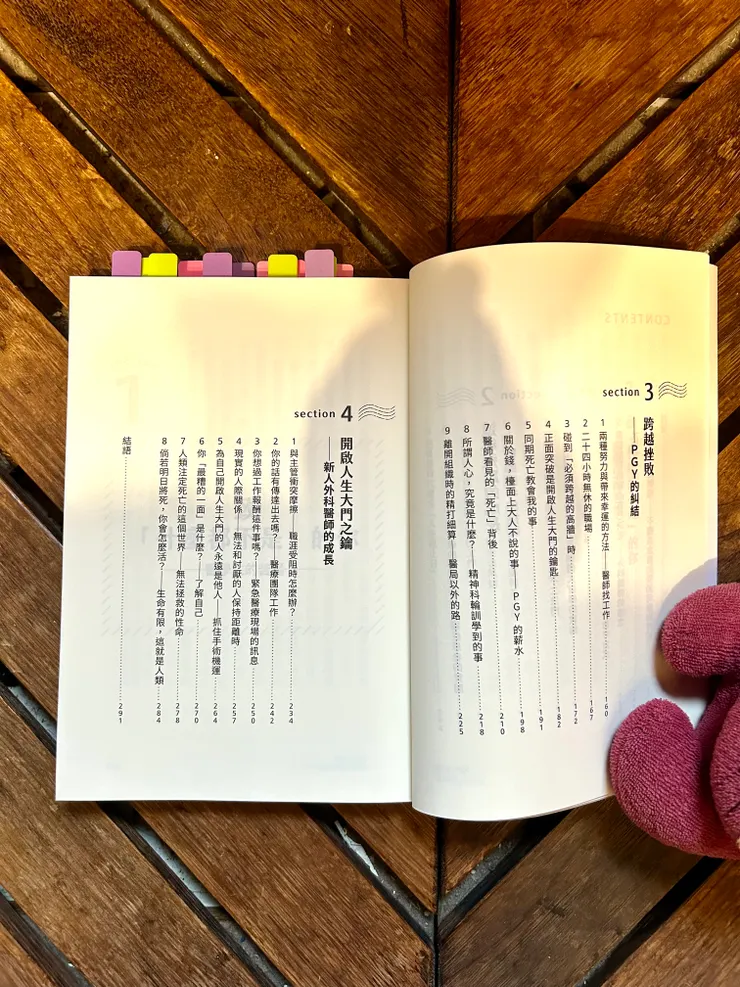 section 3
跨越挫敗
——PGY的糾結
1 兩種努力與帶來幸運的方法——醫師找工作 160
2 二十四小時無休的職場 167
3 碰到「必須跨越的高牆」時 172
4 正面突破是開啟人生大門的鑰匙 182
5 同期死亡教會我的事 191
6 關於錢,檯面上大人不說的事——PGY的薪水 198
7 醫師看見的「死亡」背後 210
8 所謂人心,究竟是什麼?——精神科輪訓學到的事 218
9 離開組織時的精打細算——醫局以外的路 225
section 4
開啟人生大門之鑰
——新人外科醫師的成長
1 與主管衝突摩擦——職涯受阻時怎麼辦? 234
2 你的話有傳達出去嗎?——醫療團隊工作 242
3 你想過工作報酬這件事嗎?——緊急醫療現場的訊息 250
4 現實的人際關係——無法和討厭的人保持距離時 257
5 為自己開啟人生大門的人永遠是他人——抓住手術機運 264
6 你「最糟的一面」是什麼?——了解自己 270
7 人類注定死亡的這個世界——無法拯救的性命 278
8 倘若明日將死,你會怎麼活?——生命有限,這就是人類 284
結語 291
CONTENTS